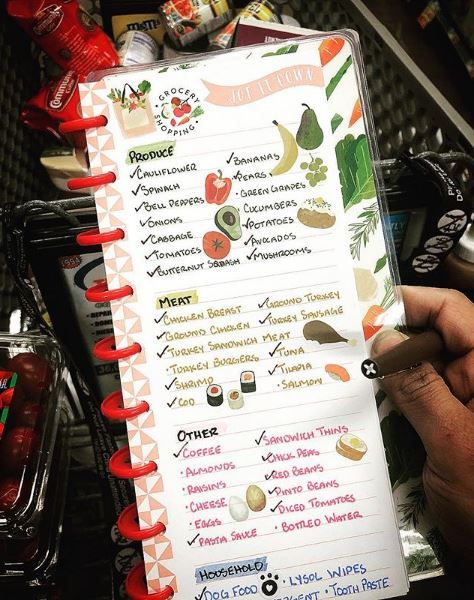 GROCERY SHOPPING
JOT IT DOWN
PRODUCE
✓CAULIFLOWER
✓SPINACH
✓BELL PEPPERS
✓ONIONS
✓CABBAGE
✓TOMATOES
✓BUTTERNUT SQUASH
✓BANANAS
✓PEARS
· GREEN GRAPES
CUCUMBERS
✓POTATOES
✓AVOCADOS
✓MUSHROOMS
MEAT
✓CHICKEN BREAST
✓GROUND CHICKEN
✓TURKEY SANDWICH MEAT
· TURKEY BURGERS
✓SHRIMP
✓COD
✓GROUND TURKEY
✓TURKEY SAUSAGE
✓TUNA
✓TILAPIA
· SALMON
OTHER
✓COFFEE
· ALMONDS
· RAISINS
· CHEESE
· EGGS
✓PASTA SAUCE
✓SANDWICH THINS
✓CHICK PEAS
✓RED BEANS
✓PINTO BEANS
✓DICED TOMATOES
· BOTTLED WATER
HOUSEHOLD
✓DOG FOOD
· LYSOL WIPES
· TOOTH PASTE